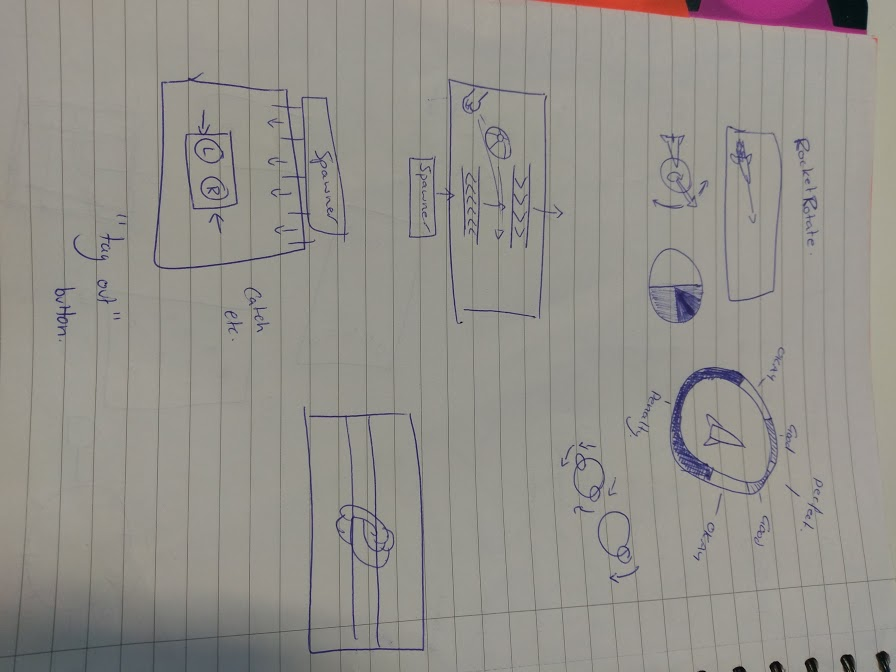 Rocket Rotate.
okay
Good
perfect.
Good
okay
Penalty
Spawner
Spawner
L R
Catch
etc.
"tag out"
button.